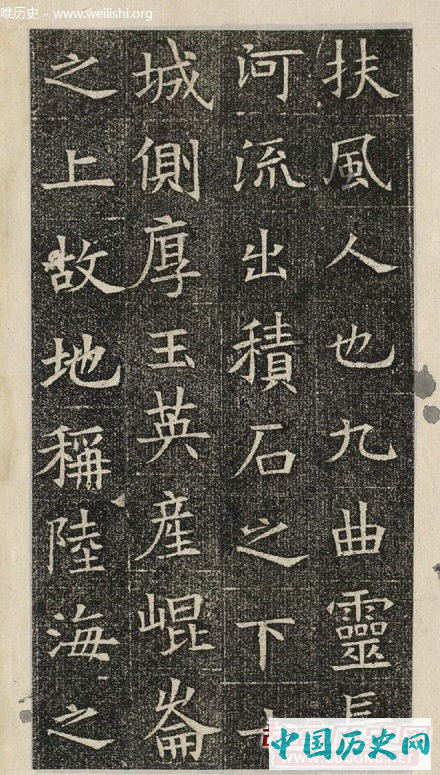 唯历史 - www.weilishi.org
扶風人也九曲靈長
河流出積石之下十
城側厚玉英産崐崙
之上故地稱陸海之
中国历史网